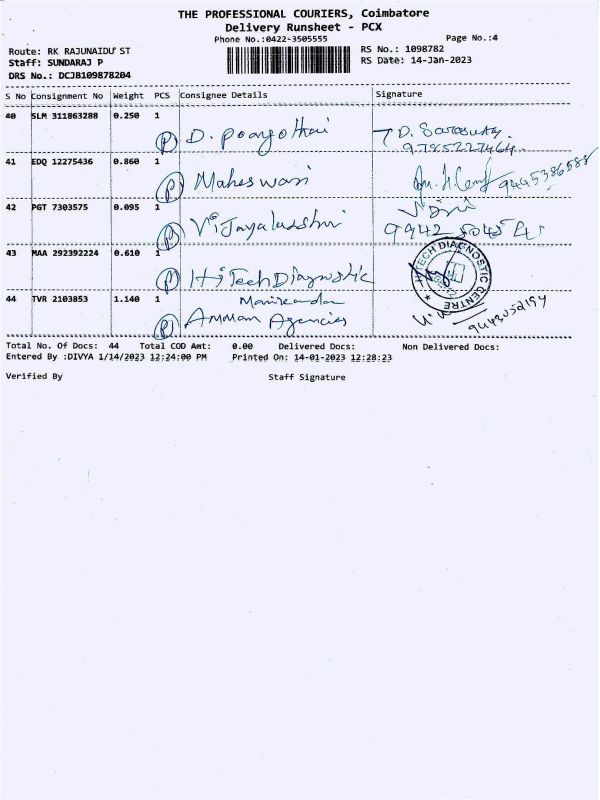 THE PROFESSIONAL COURIERS, Coimbatore
Delivery Runsheet - PCX
Phone No.:0422-3505555
Page No.:4
Route: RK RAJUNAIDU ST
RS No.: 1098782
Staff: SUNDARAJ P
RS Date: 14-Jan-2023
DRS No.: DCJB109878204
S No Consignment No Weight PCS Consignee Details Signature
40 SLM 311863288 0.250 1
P D. Poongothai D. Saraswathy.
9785227464
41 EDQ 12275436 0.860 1
P Maheswari 9445386588
42 PGT 7303575 0.095 1
P Vijayalakshmi
9942
43 MAA 292392224 0.610 1
P Hi Tech Diagnostic
HI-TECH DIAGNOSTIC CENTRE
44 TVR 2103853 1.140 1
Manikandan
P Amman Agencies 9443052194
Total No. Of Docs: 44 Total COD Amt: 0.00 Delivered Docs: Non Delivered Docs:
Entered By :DIVYA 1/14/2023 12:24:00 PM Printed On: 14-01-2023 12:28:23
Verified By Staff Signature